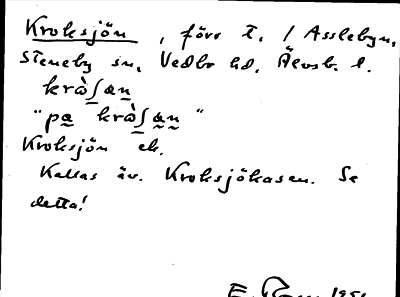 Kroksjön, förr t. / Asslebyn,
Steneby sn, Vedbo hd, Älvsb. l.
kràʃan
"pa kràʃan"
Kroksjön ek.
Kallas äv. Kroksjökasen. Se
detta!
E.